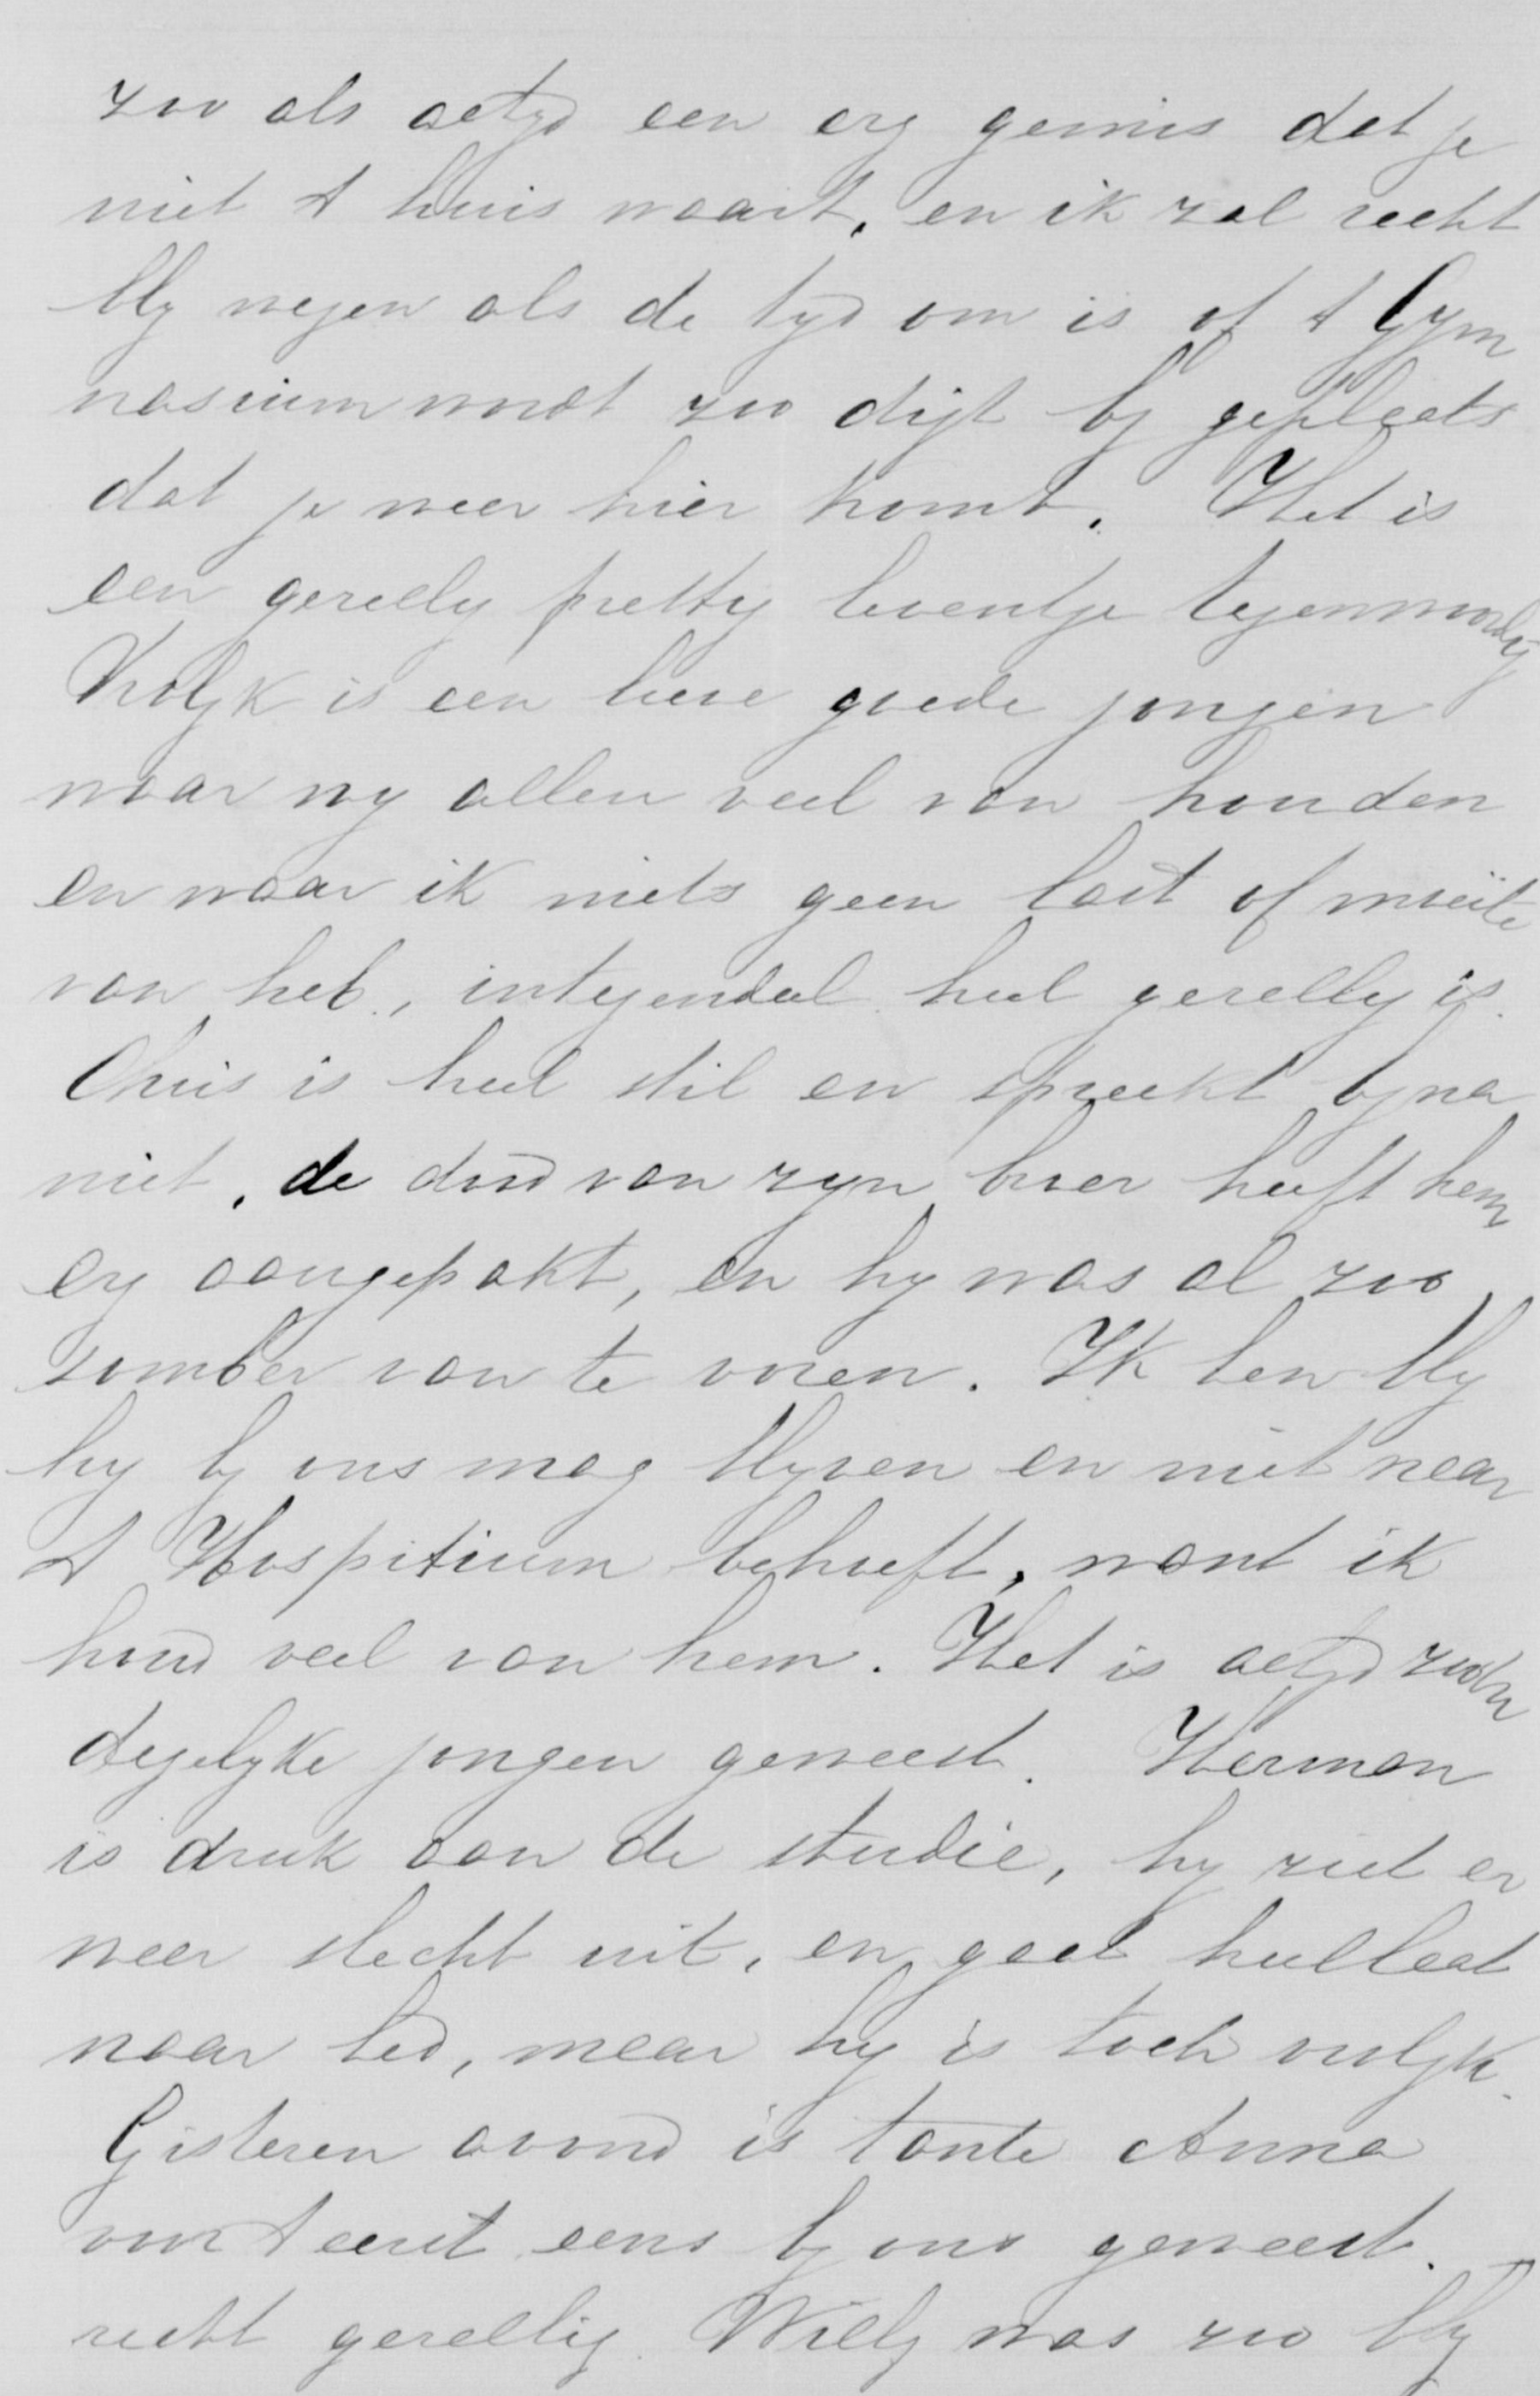 zoo als altyd een erg gemis dat je
niet t huis waart, en ik zal recht
bly wezen als de tyd om is of t Gym
nasium wordt zoo digt by geplaats
dat je weer hier komt. Het is
een gezellig prettig leventje tegenwoordig
is een lieve goede jongen
waar wy allen veel van houden
en waar ik niets geen last of moeite
van heb, integendeel heel gezellig is.
Chris is heel stil en spreekt byna
niet, de dood van zyn broer heeft hem
erg aangepakt, en hy was al zoo
somber van te voren. Ik ben bly
hy by ons mag blyven en niet naar
t Hospitium behoeft, want ik
houd veel van hem. Het is altyd zoo'n
degelyke jongen geweest. Herman
is druk aan de studie, hy ziet er
weer slecht uit, en gaat heel laat
naar bed, maar hy is toch vrolyk.
Gisteren avond is tante Anna
voor t eerst eens by ons geweest.
recht gezellig. Willy was zoo bly